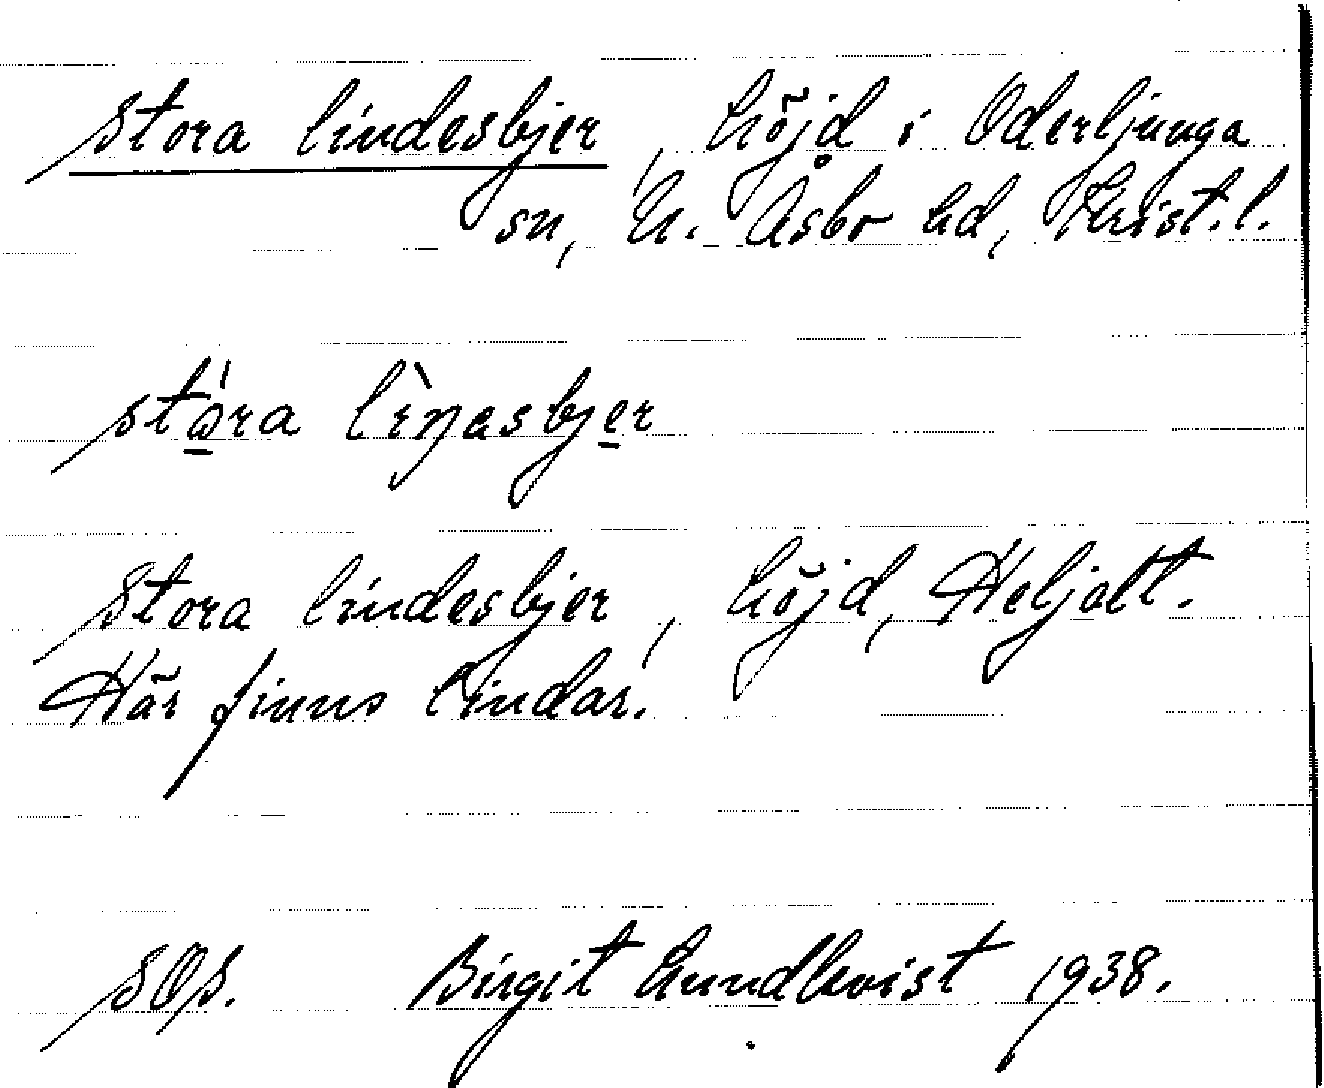 Stora lindesbjer, höjd i Oderljunga
sn, N. Åsbo hd, Krist. l.
stǫ́ra lìŋasbjęr
Stora lindesbjer, höjd, Heljalt.
Här finns lindar.
SOS. Birgit Lundkvist 1938.